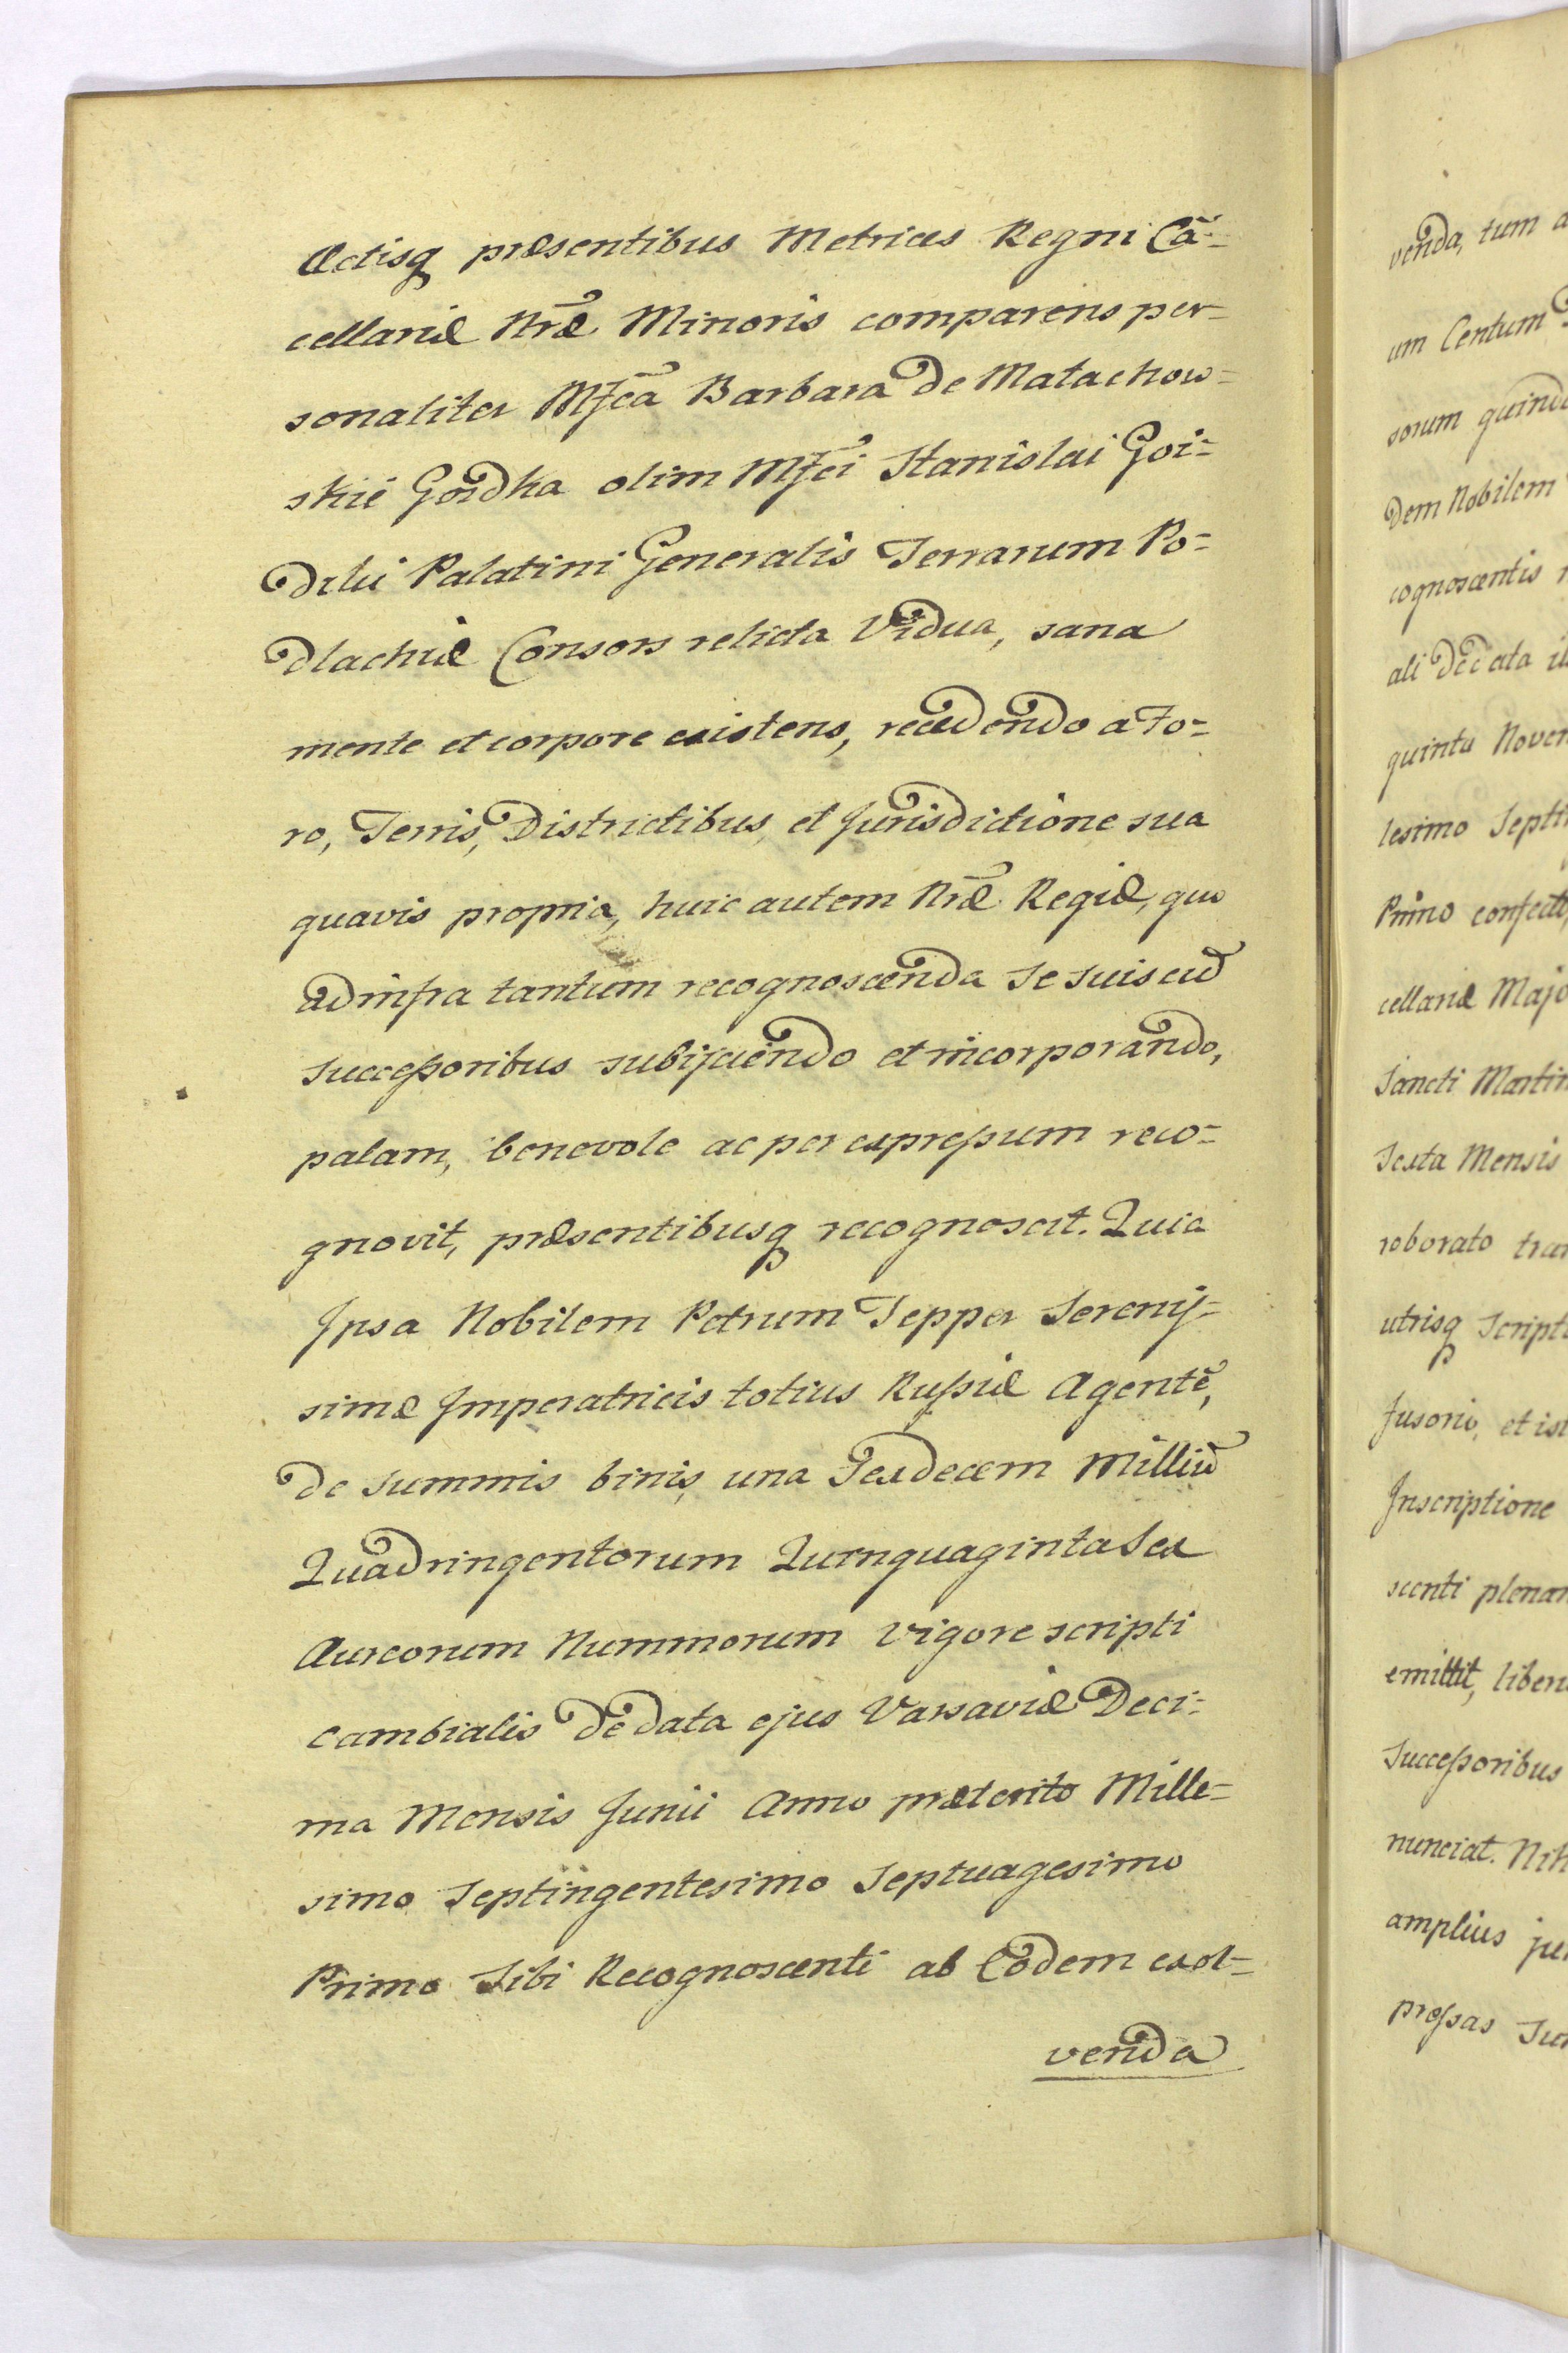 Actisq præsentibus Metrices Regni Cã-
cellariæ Nr̃æ Minoris comparens per-
sonaliter Mf̃ca Barbara de Małachow-
skie Gozdka olim Mf̃ci Stanislai Goz-
dzki Palatini Generalis Terrarum Po-
dlachiæ Consors relicta Vidua, sana
mente et corpore existens, recedendo a Fo-
ro, Terris, Districtibus, et Jurisdictione sua
quavis propria, huic autem Nr̃æ Regiæ, quo
ad infra tantum recognoscenda se suis cũ
Successoribus subijciendo et incorporando,
palam, benevole ac per expressum reco-
gnovit, præsentibusq recognoscit. Quia
Ipsa Nobilem Petrum Tepper Serenis-
simæ Imperatricis totius Russiæ Agentẽ,
de Summis binis, una Sexdecem Milliũ
Quadringentorum Quinquaginta Sex
Aureorum Nummorum vigore scripti
cambialis de data ejus Varsaviæ Deci-
ma Mensis Junii Anno præterito Mille-
simo Septingentesimo Septuagesimo
Primo Sibi Recognoscenti ab Eodem exol-
venda
venda, tum a
um Centum
sorum quind
dem Nobilem
cognoscentis
ali de data
quinta Novem
lesimo Septi
Primo confect
cellariæ Majo
Sancti Martin
Sexta Mensis
roborato tra
utrisq Script
fusorio, et is
Inscriptione
scenti plenar
emittit, liber
Successoribus
nunciat. Nih
amplius ju
pressas Su